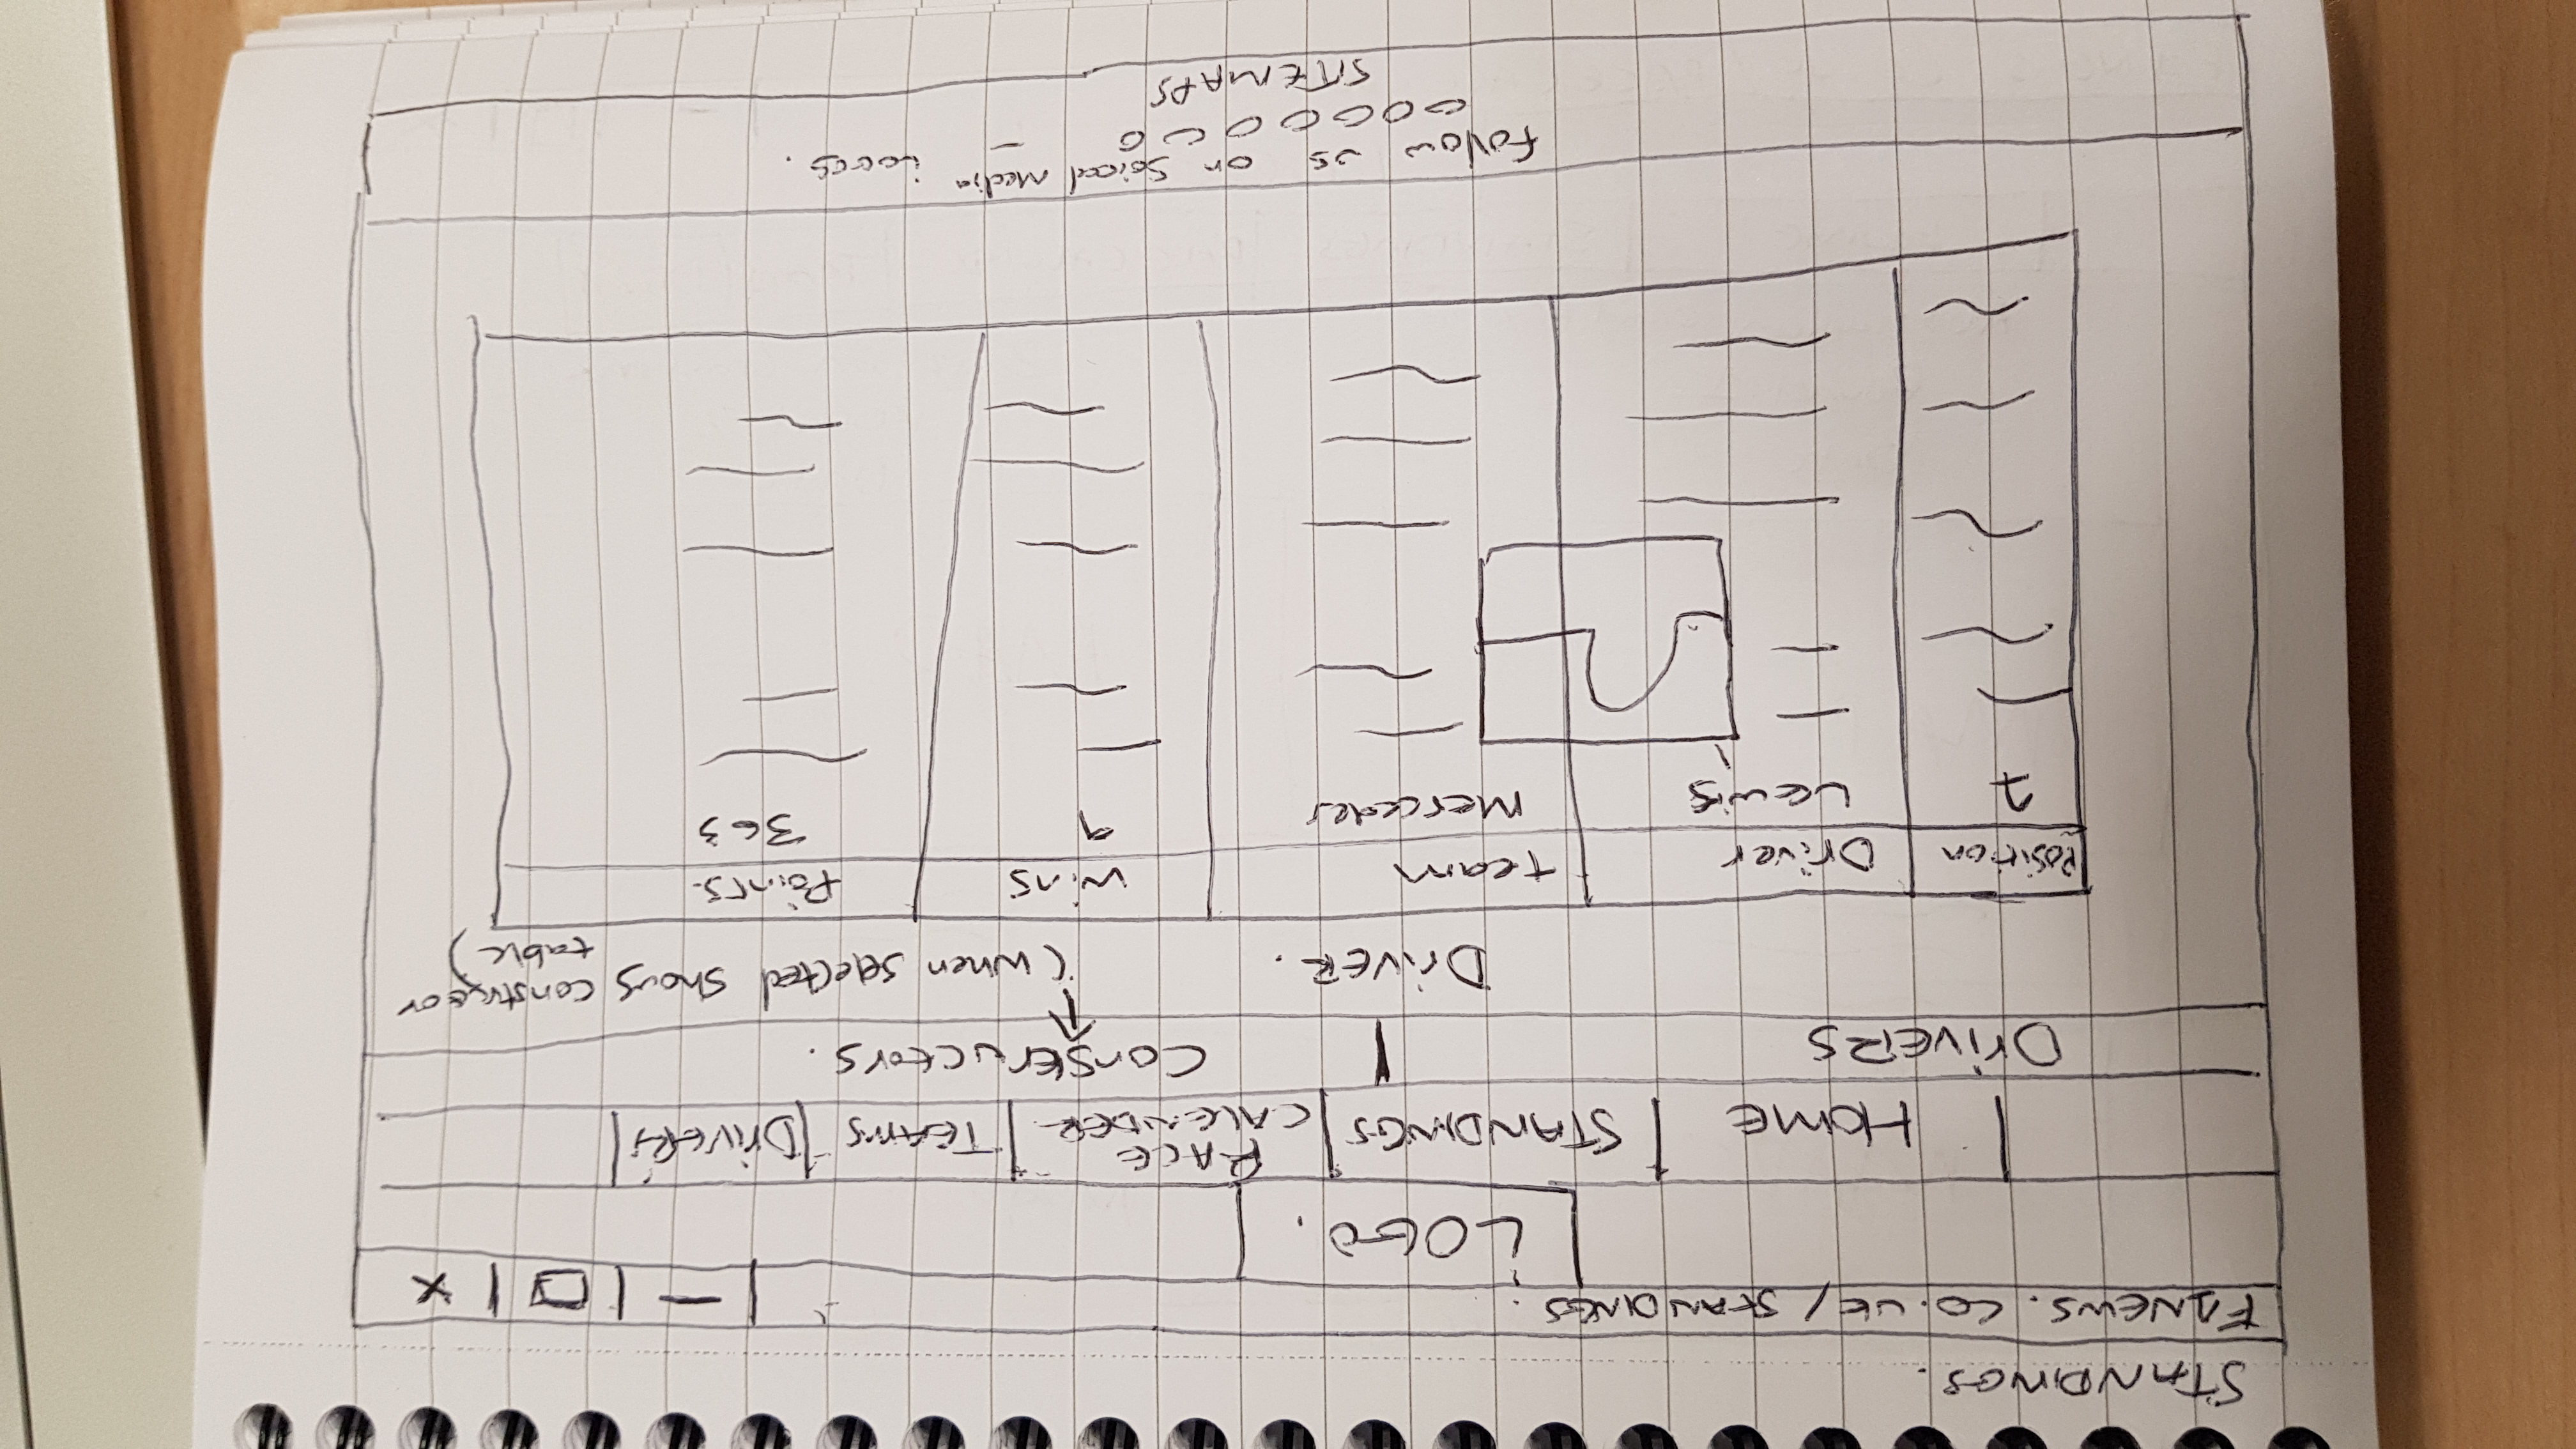 STANDINGS.
F1NEWS.CO.UK/STANDINGS.
LOGO.
HOME STANDINGS RACE CALENDER TEAMS DRIVERS
DRIVERS Constructors.
DRIVER. (When selected shows constructor
table)
Position Driver team wins Points.
1 LEWIS Mercedes 9 363
follow us on Soical Media
SITEMAPS